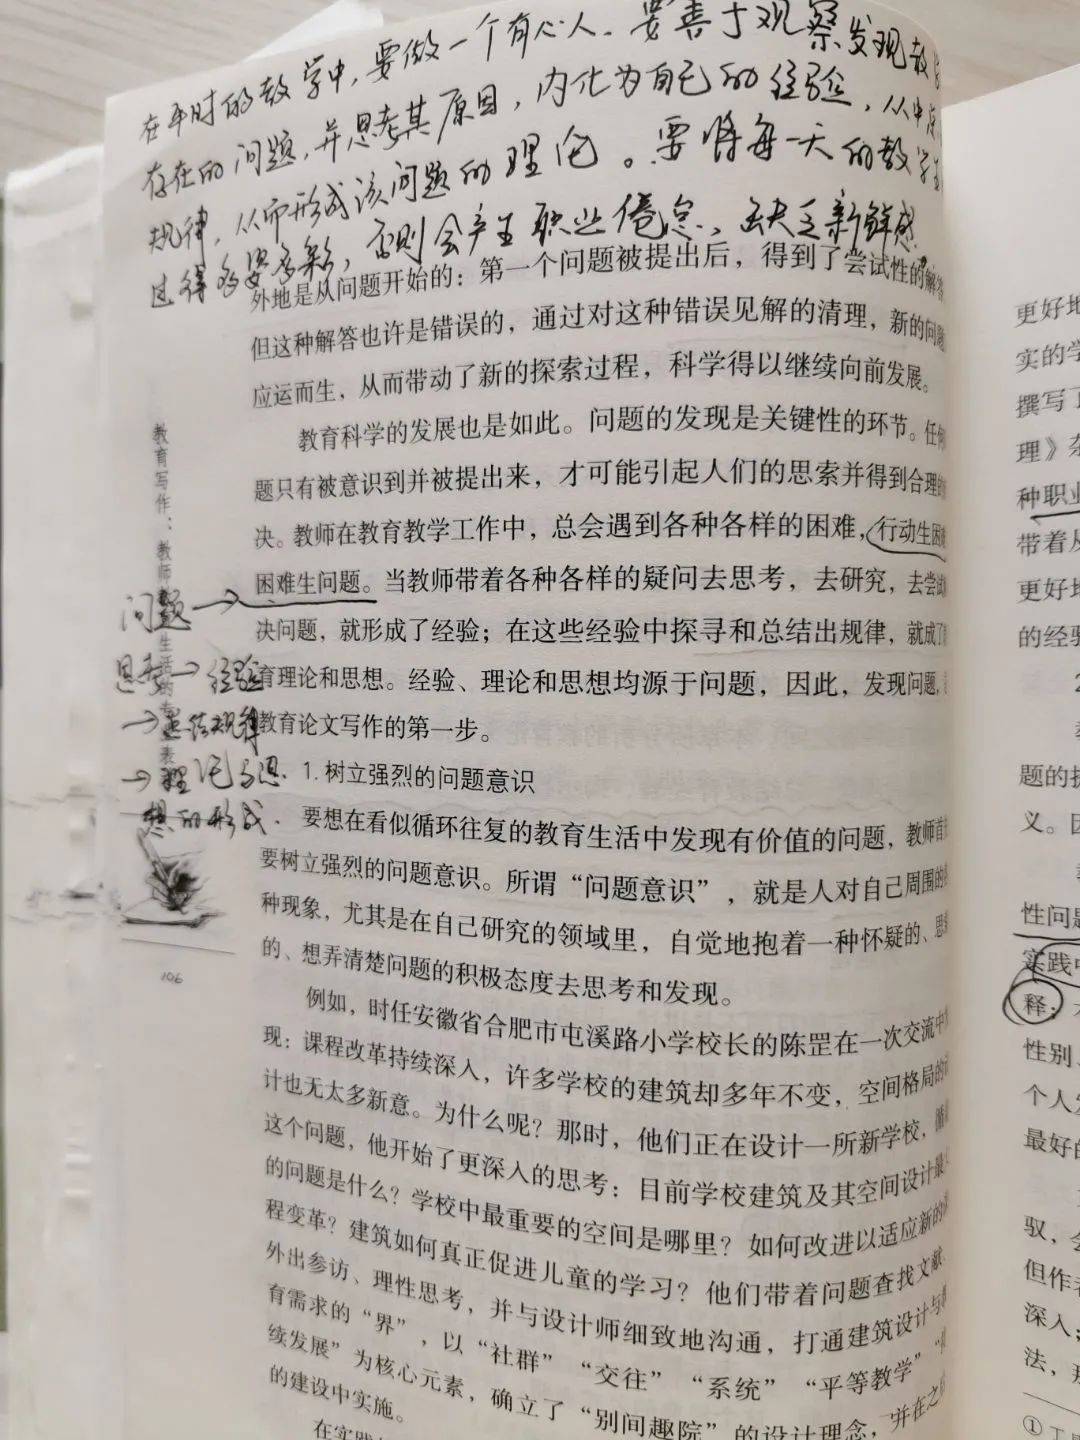 在平时的教学中,要做一个有心人。要善于观察发现教
存在的问题,并思考其原因,内化为自己的经验,从中
规律,从而形成该问题的理论。要将每一天的教学
过得多姿多彩,否则会产生职业倦怠,缺乏新鲜感
外地是从问题开始的：第一个问题被提出后，得到了尝试性的解答
但这种解答也许是错误的，通过对这种错误见解的清理，新的问题
应运而生，从而带动了新的探索过程，科学得以继续向前发展。
教育科学的发展也是如此。问题的发现是关键性的环节。任何
题只有被意识到并被提出来，才可能引起人们的思索并得到合理的
决。教师在教育教学工作中，总会遇到各种各样的困难，行动生困难
困难生问题。当教师带着各种各样的疑问去思考，去研究，去尝试
决问题，就形成了经验；在这些经验中探寻和总结出规律，就成了
育理论和思想。经验、理论和思想均源于问题，因此，发现问题，
教育论文写作的第一步。
1.树立强烈的问题意识
要想在看似循环往复的教育生活中发现有价值的问题，教师首
要树立强烈的问题意识。所谓“问题意识”，就是人对自己周围的
种现象，尤其是在自己研究的领域里，自觉地抱着一种怀疑的、思
的、想弄清楚问题的积极态度去思考和发现。
例如，时任安徽省合肥市屯溪路小学校长的陈罡在一次交流中
现：课程改革持续深入，许多学校的建筑却多年不变，空间格局的
计也无太多新意。为什么呢？那时，他们正在设计一所新学校，
这个问题，他开始了更深入的思考：目前学校建筑及其空间设计最
的问题是什么？学校中最重要的空间是哪里？如何改进以适应新的
程变革？建筑如何真正促进儿童的学习？他们带着问题查找文献、
外出参访、理性思考，并与设计师细致地沟通，打通建筑设计与
育需求的“界”，以“社群”“交往”“系统”“平等教学”
续发展”为核心元素，确立了“别间趣院”的设计理念，并在之
的建设中实施。
在实践
教育写作：教师
生活的
表
问题→
思考→经验
→总结规律
→理论与思
想的形成
106
更好地
实的学
撰写了
理》杂
种职业
带着从
更好地
的经验
2
题的提
义。因
性问题
实践中
释；
性别、
个人
最好的
驭，会
但作者
深入；
法，那
①